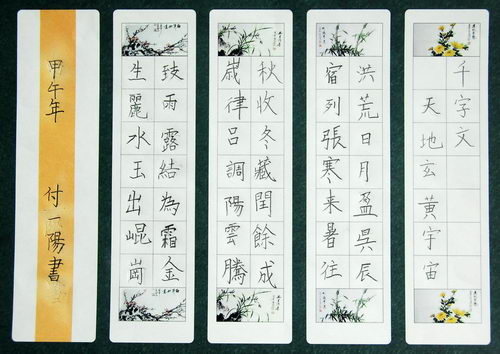 千字文
天地玄黃宇宙
洪荒日月盈昃辰
宿列張寒来暑往
秋收冬藏閏餘成
嵗律吕調陽雲騰
致雨露結為霜金
生麗水玉出崐崗
甲午年 付一陽書